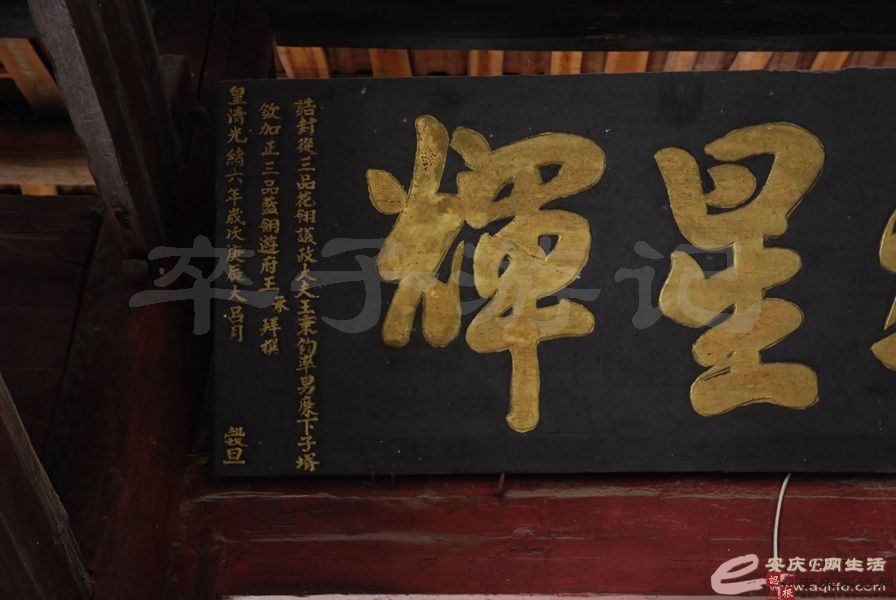 星輝
誥封從三品花翎議政大夫王秉鈞率男廉下子壻
欽加正三品藍翎遊府王承拜撰
皇清光緒六年歲次庚辰大呂月 穀旦
卒子游记
安庆E网生活
www.aqlife.com